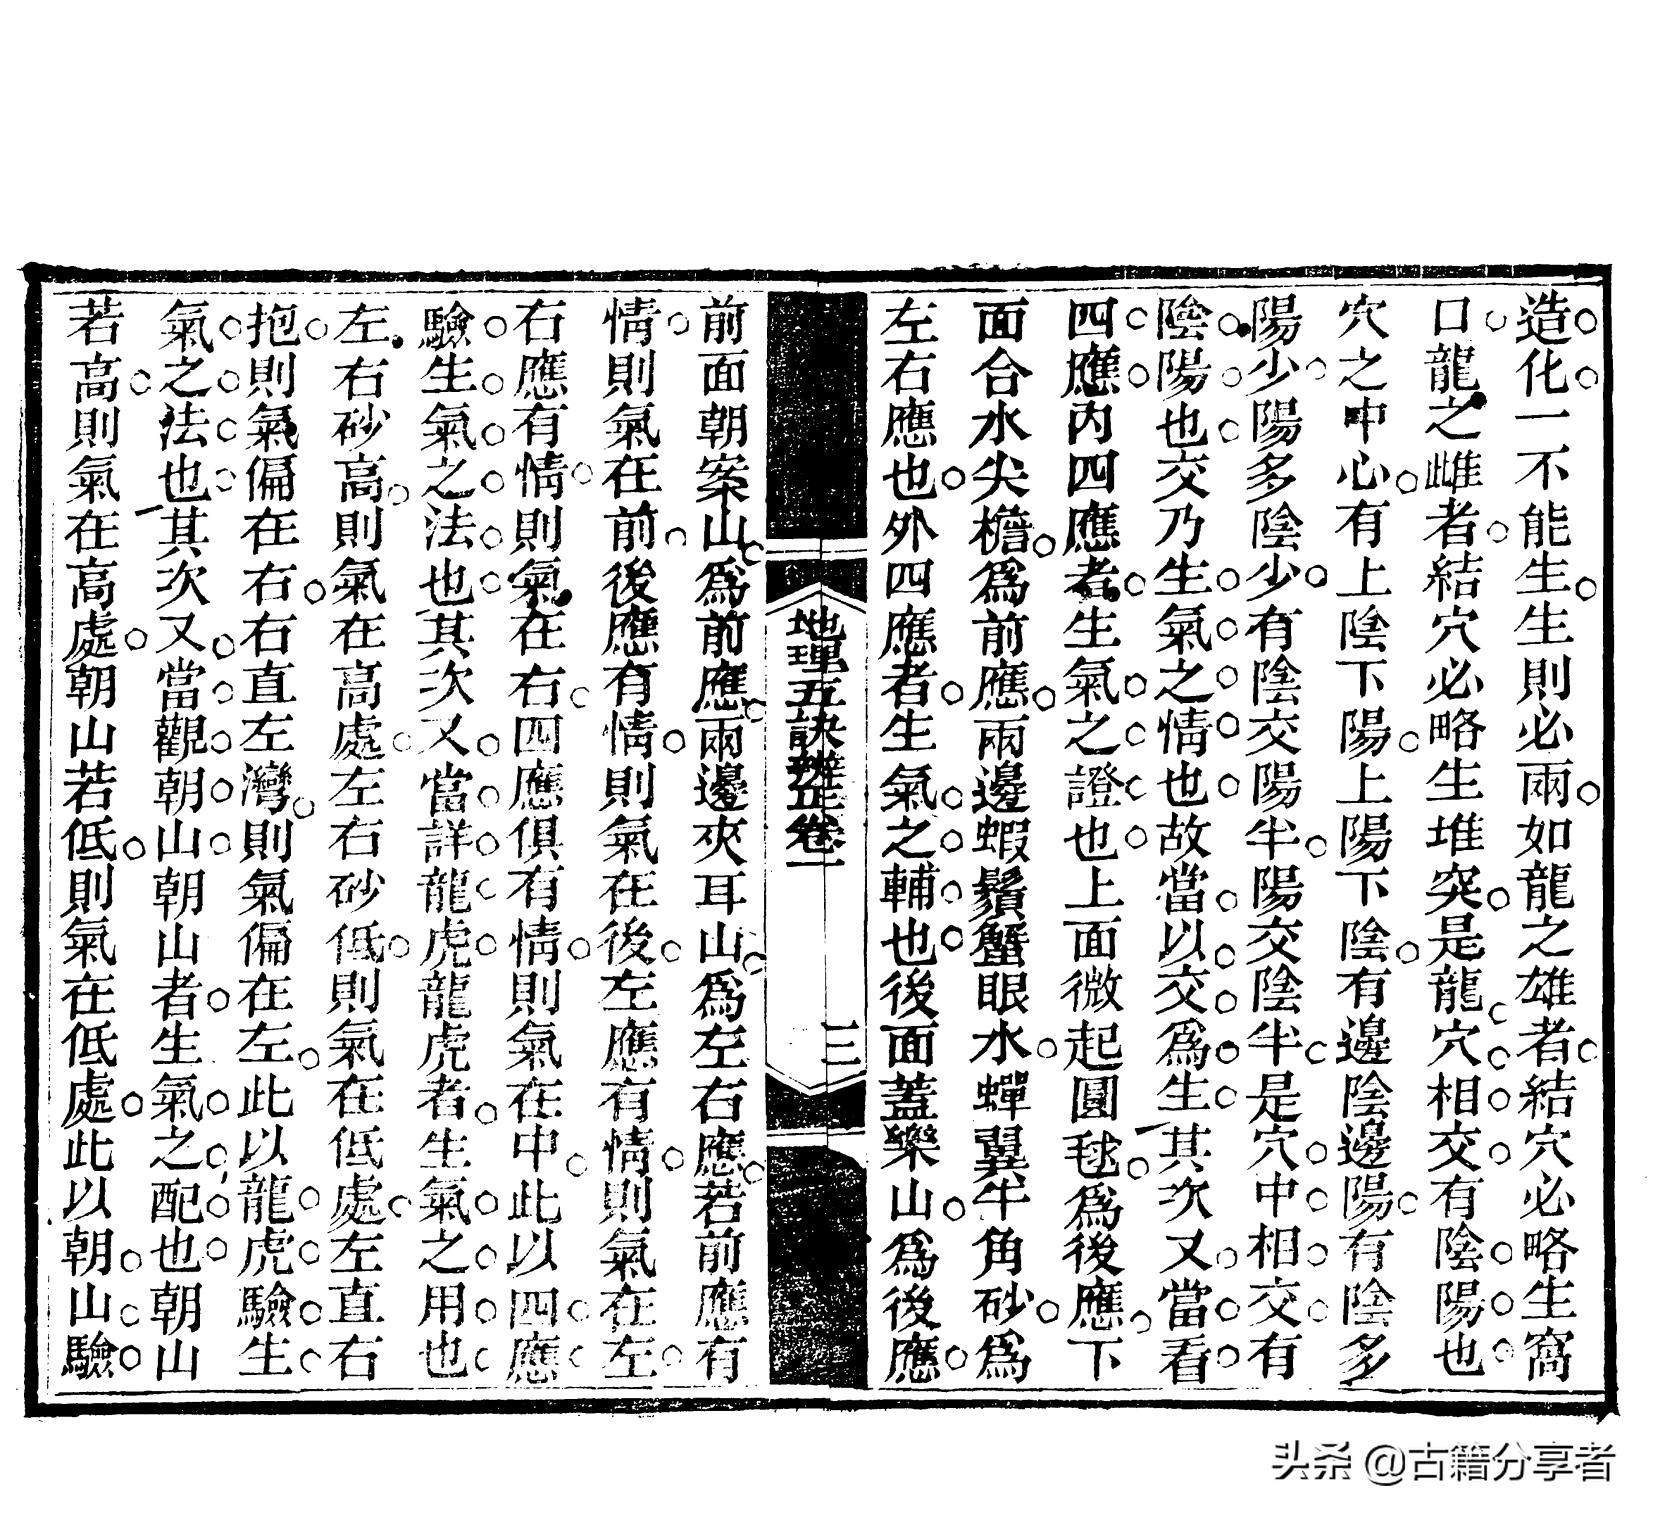 造化一不能生生則必兩如龍之雄者結穴必略生窩
口龍之雌者結穴必略生堆突是龍穴相交有陰陽也
穴之中心有上陰下陽上陽下陰有邊陰邊陽有陰多
陽少陽多陰少有陰交陽半陽交陰半是穴中相交有
陰陽也交乃生氣之情也故當以交為生其次又當看
四應內四應者生氣之證也上面微起圓毬為後應下
面合水尖檐為前應兩邊蝦鬚蟹眼水蟬翼牛角砂為
左右應也外四應者生氣之輔也後面蓋樂山為後應
地理五訣辨正卷一
三
前面朝案山為前應兩邊夾耳山為左右應若前應有
情則氣在前後應有情則氣在後左應有情則氣在左
右應有情則氣在右四應俱有情則氣在中此以四應
驗生氣之法也其次又當詳龍虎龍虎者生氣之用也
左右砂高則氣在高處左右砂低則氣在低處左直右
抱則氣偏在右右直左灣則氣偏在左此以龍虎驗生
氣之法也其次又當觀朝山朝山者生氣之配也朝山
若高則氣在高處朝山若低則氣在低處此以朝山驗
头条 @古籍分享者